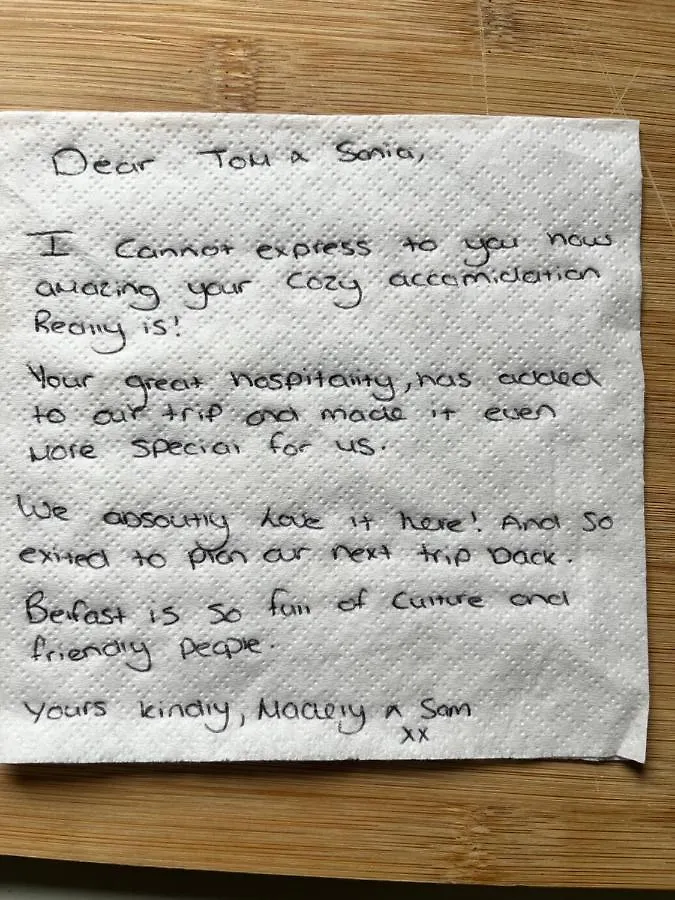 Dear Tom & Sonia,
I Cannot express to you how
amazing your Cozy accomidation
Really is!
Your great hospitality, has added
to our trip and made it even
more special for us.
We absoutly love it here! And so
exited to plan our next trip back.
Belfast is so full of culture and
friendly people.
Yours kindly, & Sam
xx